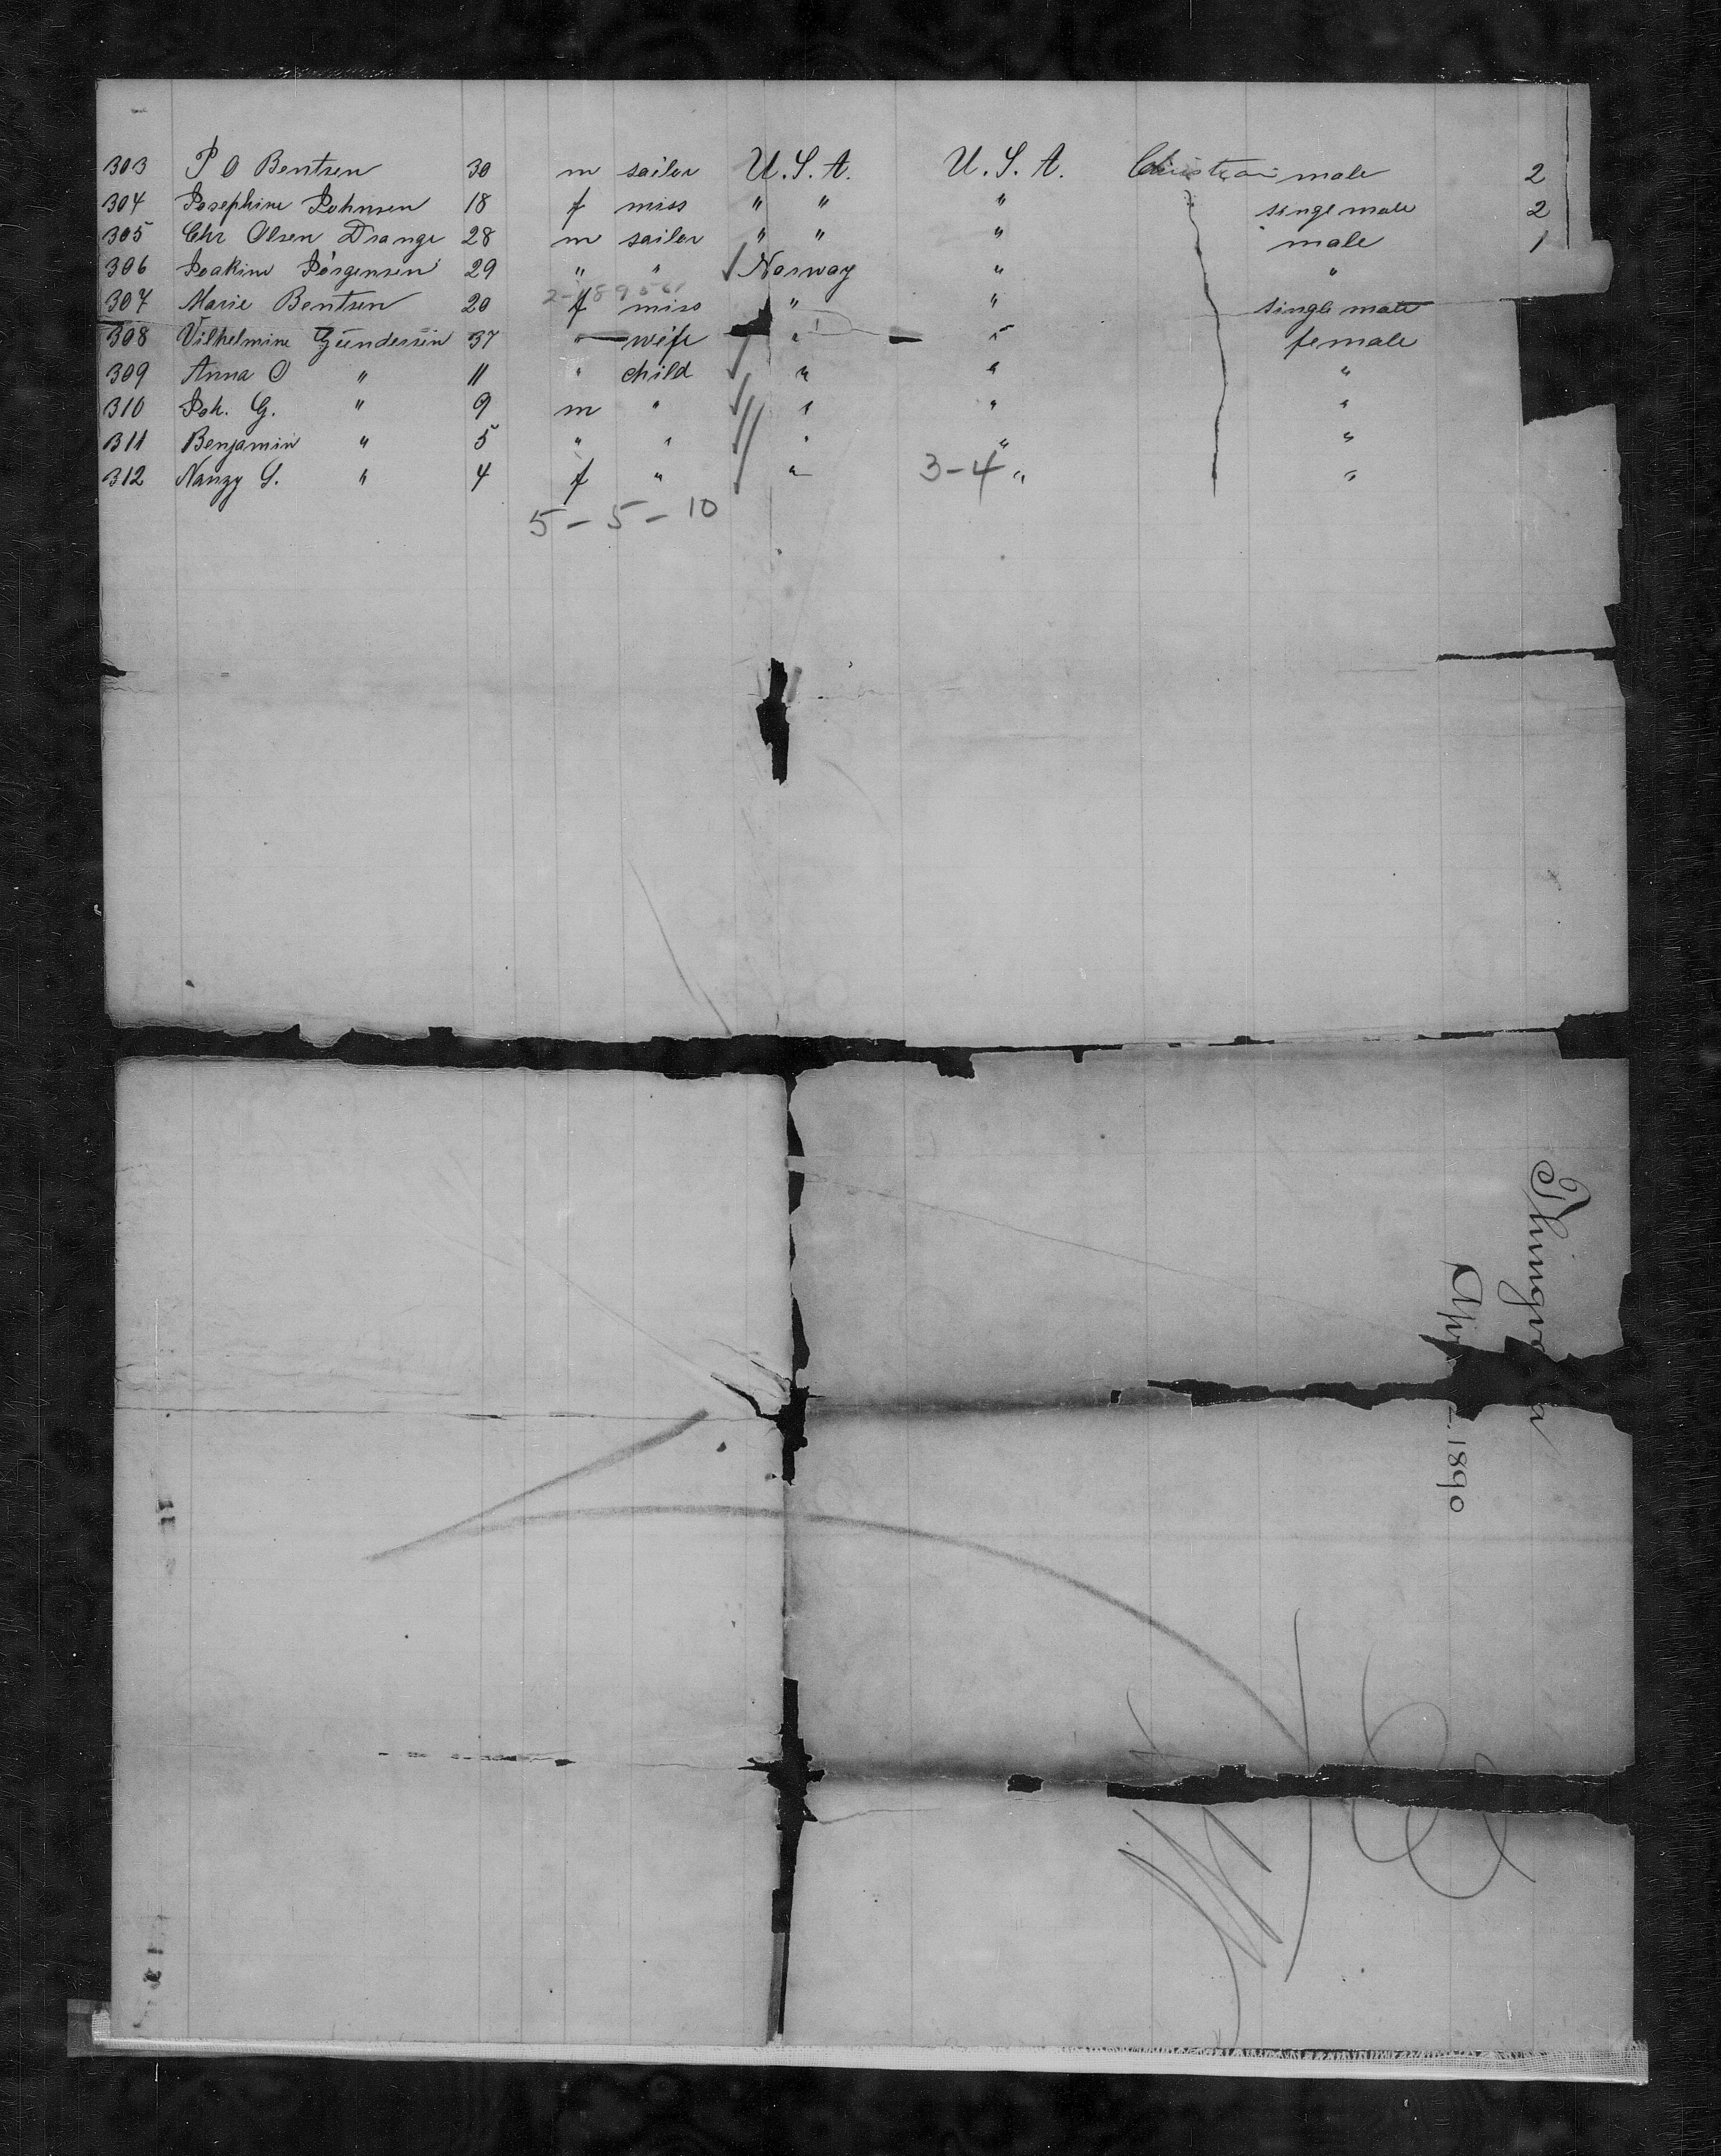 303 P O Bentsen 30 m sailor U.S.A. U.S.A. Christian male 2
304 Josephine Johnsen 18 f miss " " " singl male 2
305 Chr Olsen Drange 28 m sailor " " " male 1
306 Joakim Jörgensen 29 " " Norway " "
307 Marie Bentsen 20 f miss " " single male
308 Vilhelmine Gündersen 37 " wife " " female
309 Anna O " 11 " child " " "
310 Joh. G. " 9 m " " " "
311 Benjamin " 5 " " " " "
312 Nanzy G. " 4 f " " 3-4 " "
5-5-10
Thingvalla
Apr - 1890